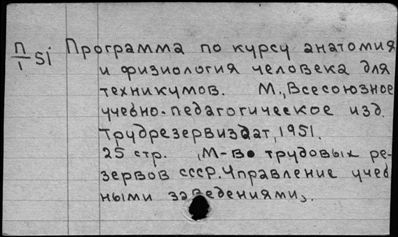 П/I si Программа по курсу анатомия
и физиология человека для
техникумов. М., Всесоюзное
учебно-педагогическое изд.
Трудрезервиздат, 1951.
25 стр. , М-во трудовых ре-
зервов СССР. Управление учеб
ными заведениями,.